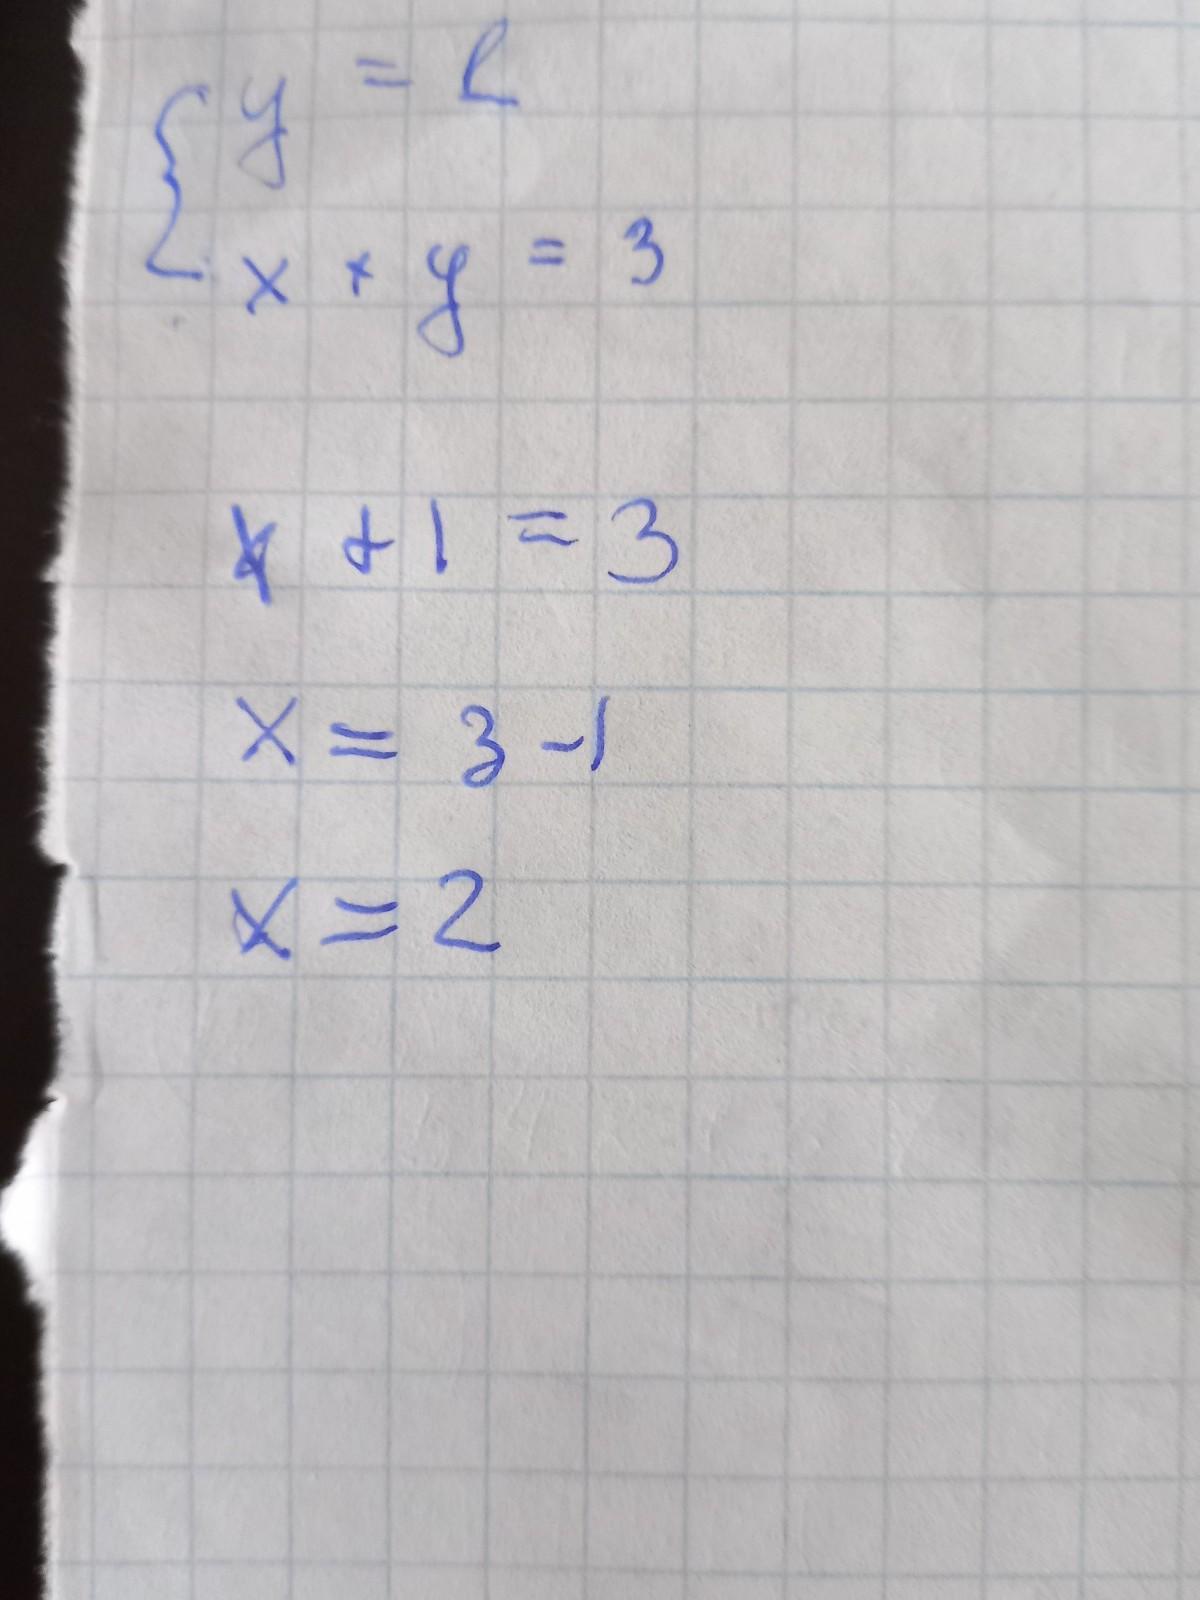 { y = 2
x + y = 3
x + 1 = 3
x = 3 - 1
x = 2